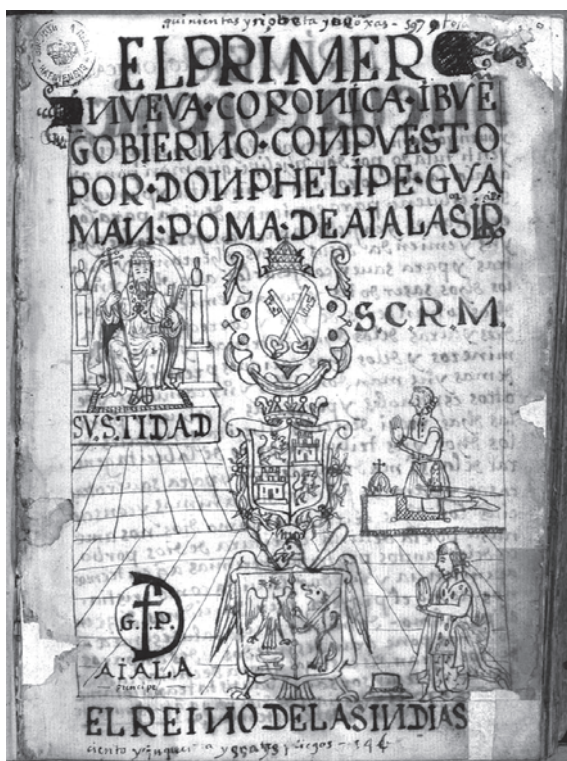 quinientas y nobeta y ojas - 597 ojas
EL PRIMER
NVEVA·CORONICA·IBVE
GOBIERNO·CONPVESTO
POR·DON PHELIPE·GVA
MAN·POMA·DE AIALA SR
S.C.R.M.
SV.S.TIDAD
G. P.
AIALA
principe
EL REINO DE LAS INDIAS
ciento y pliegos - 146